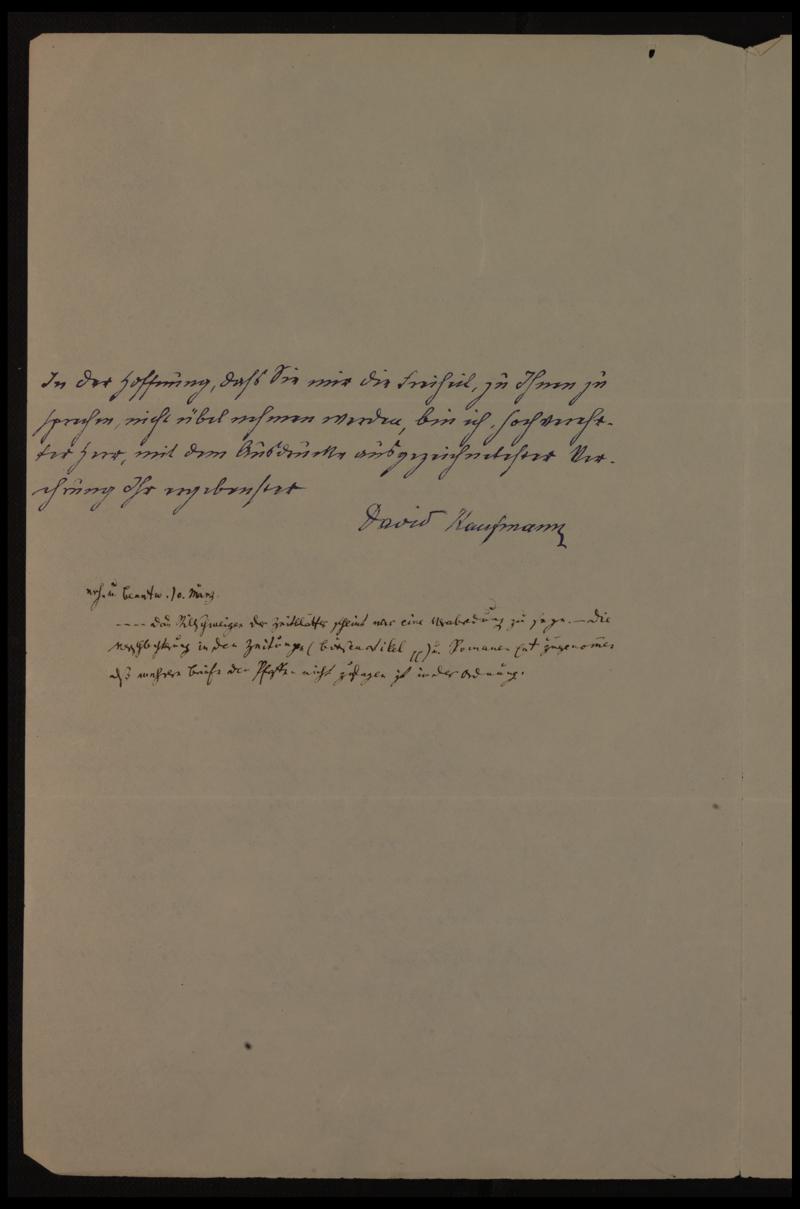 In der Hoffnung, dass Sie mir die Freiheit, zu Ihnen zu
sprechen, nicht übel nehmen werden, bin ich, hochverehr-
ter Herr, mit dem Ausdrucke ausgezeichnetster Ver-
ehrung Ihr ergebenster
David Kaufmann
erh. u. beantw. 10. März.
---- das Stillschweigen der Zeitblätter scheint mir eine Verabredung zu sein. — Die
in den Zeitungen (Börsenartikel) u. Romanen hat zugenommen
mehrere Briefe den nicht ist in der Ordnung.